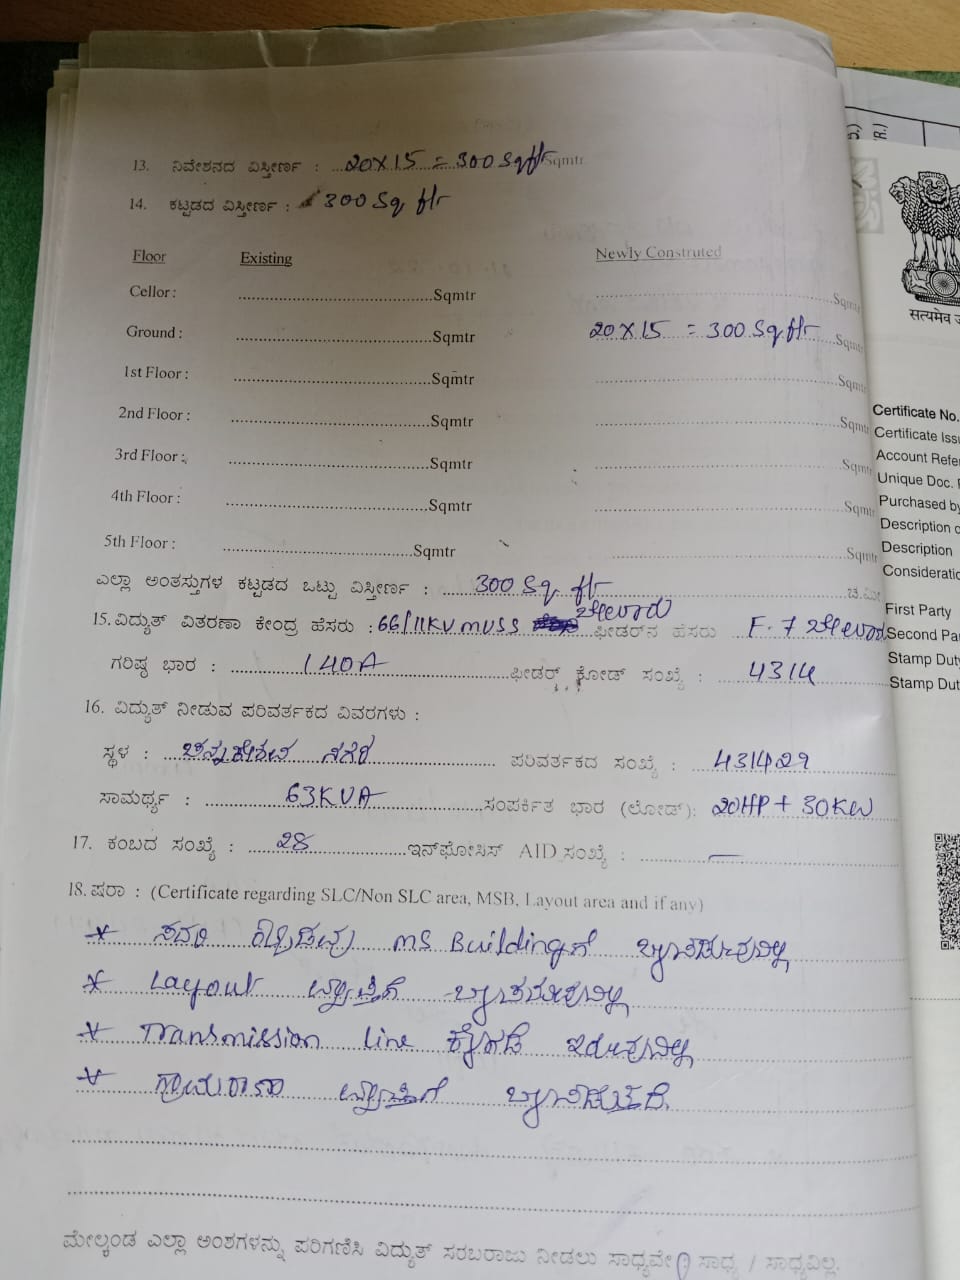 13. ನಿವೇಶನದ ವಿಸ್ತೀರ್ಣ : 20X15 = 300 Sqft Sqmtr
14. ಕಟ್ಟಡದ ವಿಸ್ತೀರ್ಣ : 300 Sq ft
Floor Existing Newly Constructed
Cellor : Sqmtr Sqmtr
Ground : Sqmtr 20X15 = 300 Sq ft Sqmtr
1st Floor : Sqmtr Sqmtr
2nd Floor : Sqmtr Sqmtr
3rd Floor : Sqmtr Sqmtr
4th Floor : Sqmtr Sqmtr
5th Floor : Sqmtr Sqmtr
ಎಲ್ಲಾ ಅಂತಸ್ತುಗಳ ಕಟ್ಟಡದ ಒಟ್ಟು ವಿಸ್ತೀರ್ಣ : 300 Sq ft ಚ.ಮೀ
15. ವಿದ್ಯುತ್ ವಿತರಣಾ ಕೇಂದ್ರ ಹೆಸರು : 66/11KV MUSS ಫೀಡರ್‌ನ ಹೆಸರು F. 7
ಗರಿಷ್ಠ ಭಾರ : 140A ಫೀಡರ್ ಕೋಡ್ ಸಂಖ್ಯೆ : 4314
16. ವಿದ್ಯುತ್ ನೀಡುವ ಪರಿವರ್ತಕದ ವಿವರಗಳು :
ಸ್ಥಳ : ಚನ್ನಕೇಶವ ನಗರ ಪರಿವರ್ತಕದ ಸಂಖ್ಯೆ : 431429
ಸಾಮರ್ಥ್ಯ : 63KVA ಸಂಪರ್ಕಿತ ಭಾರ (ಲೋಡ್): 20HP + 30KW
17. ಕಂಬದ ಸಂಖ್ಯೆ : 28 ಇನ್‌ಫೋಸಿಸ್ AID ಸಂಖ್ಯೆ : —
18. ಷರಾ : (Certificate regarding SLC/Non SLC area, MSB, Layout area and if any)
* ಸದರಿ MS Buildingಗೆ
* Layout ವ್ಯಾಪ್ತಿಗೆ
* Transmission line ಕೆಳಗಡೆ ಇರುವುದಿಲ್ಲ
* ವ್ಯಾಪ್ತಿಗೆ
ಮೇಲ್ಕಂಡ ಎಲ್ಲಾ ಅಂಶಗಳನ್ನು ಪರಿಗಣಿಸಿ ವಿದ್ಯುತ್ ಸರಬರಾಜು ನೀಡಲು ಸಾಧ್ಯವೇ : ಸಾಧ್ಯ / ಸಾಧ್ಯವಿಲ್ಲ.
सत्यमेव
Certificate No.
Certificate
Account
Unique Doc.
Purchased by
Description
Description
First Party
Second
Stamp
Stamp